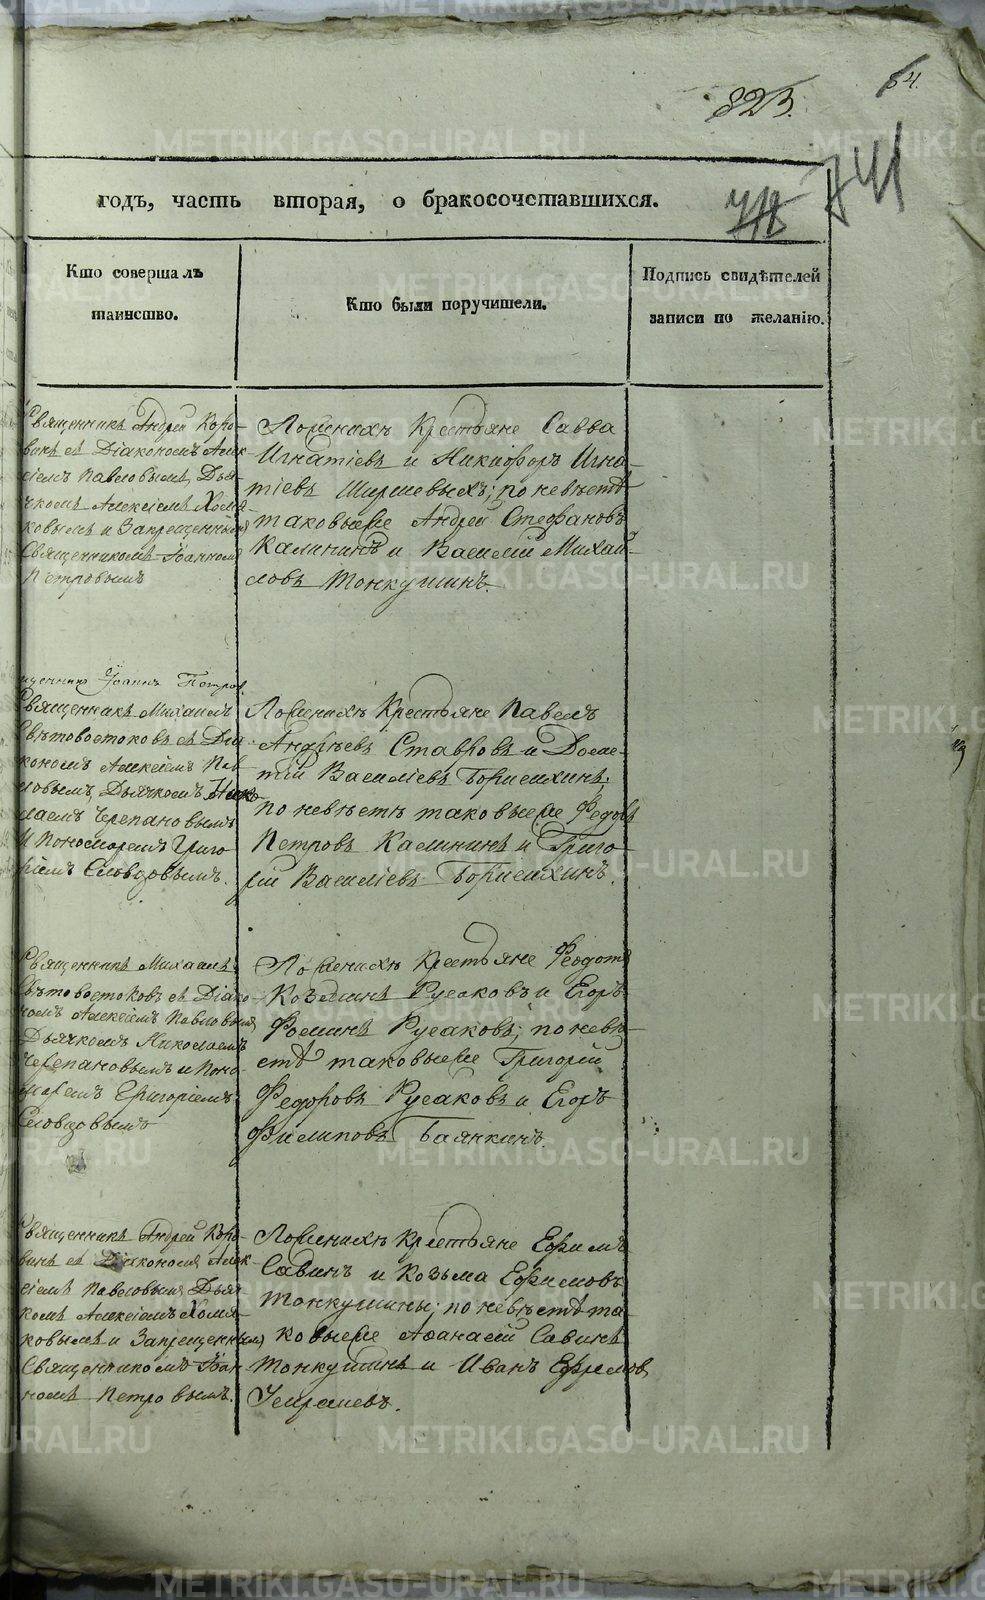 54.
823.
741
годъ, часть вторая, о бракосочетавшихся.
Кто совершалъ
таинство.
Кто были поручители.
Подпись свидѣтелей
записи по желанію.
Священникъ Андрей Коро-
винъ съ Діакономъ Алек-
сіемъ Павловымъ, Дья-
чкомъ Алексіемъ Хомя-
ковымъ и Запрещеннымъ
Священникомъ Іоанномъ
Петровымъ
По женихѣ Крестьяне Савва
Игнатіевъ и Никифоръ Игна-
тіевъ Ширшевыхъ; по невѣстѣ
таковыеже Андрей Стефановъ
Калининъ и Василій Михай-
ловъ Тонкушинъ.
щенникъ Іоаннъ Петров
Священникъ Михаилъ
Свѣтовостоковъ съ Діа-
кономъ Алексіемъ Пав-
ловымъ, Дьячкомъ Нико-
лаемъ Черепановымъ
и Пономаремъ Григо-
ріемъ Словцовымъ.
По женихѣ Крестьяне Павелъ
Андрѣевъ Ставровъ и Доме-
тій Василіевъ Борисихинъ;
по невѣстѣ таковыеже Федоръ
Петровъ Калининъ и Григо-
рій Василіевъ Борисихинъ.
Священникъ Михаилъ
Свѣтовостоковъ съ Діако-
номъ Алексіемъ Павловымъ
Дьячкомъ Николаемъ
Черепановымъ и Поно-
маремъ Григоріемъ
Словцовымъ
По женихѣ Крестьяне Феодотъ
Козминъ Русаковъ и Егоръ
Фоминъ Русаковъ; по невѣ-
стѣ таковыеже Григорій
Федоровъ Русаковъ и Егоръ
Филиповъ Баянкинъ.
Священникъ Андрей Коро-
винъ съ Діакономъ Алек-
сіемъ Павловымъ Дьяч-
комъ Алексіемъ Хомя-
ковымъ и Запрещеннымъ
Священникомъ Іоан-
номъ Петровымъ.
По женихѣ Крестьяне Ефимъ
Савинъ и Козьма Ефимовъ
Тонкушины; по невѣстѣ та-
ковыеже Афанасій Савинъ
Тонкушинъ и Иванъ Ефремовъ
METRIKI.GASO-URAL.RU